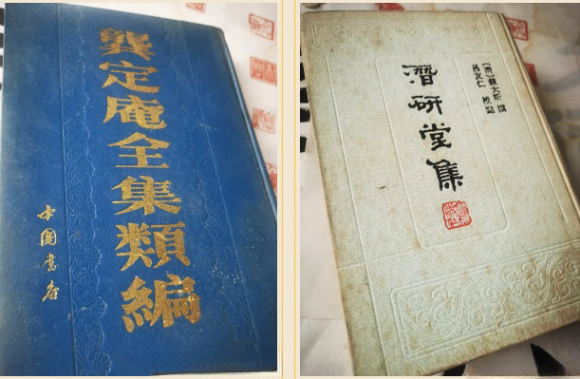 龔定庵全集類編
中国书店
潛研堂集
〔清〕錢大昕 撰
呂友仁 校點